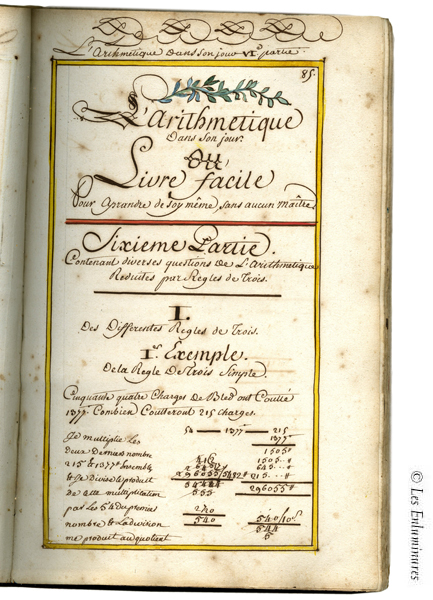 L'Arithmetique dans son jour VI.e partie.
85.
L'Arithmetique
Dans son jour.
Ou
Livre facile
Pour Aprandre de soy même, sans aucun Maître,
Sixieme Partie.
Contenant diverses questions De L'Arithmetique
Reduites par Regles de Trois.
I.
Des Differentes Regles de Trois.
I.r Exemple.
De la Regle De Trois Simple.
Cinquante quatre Charges De Bled ont Coutté
1377. Combien Coutteront 215 charges.
54 — 1377 — 215
Je multiplie Les
1377
deux Derniers nombre
1505
215 & 1377 Ensemble
1505
645
& Je Divise le produit
215
de cette multiplication
296055
par Les 54 du premier
540
nombre & La division
me produit au quotient
© Les Enluminures